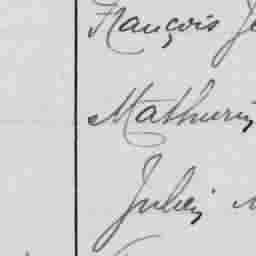 François Je
Mathurin
Julien